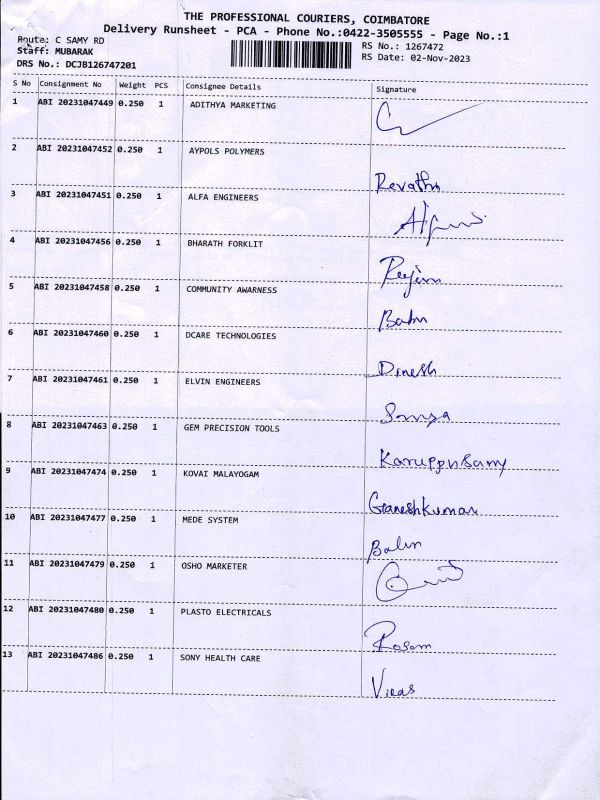 THE PROFESSIONAL COURIERS, COIMBATORE
Delivery Runsheet - PCA - Phone No.:0422-3505555 - Page No.:1
Route: C SAMY RD
RS No.: 1267472
Staff: MUBARAK
RS Date: 02-Nov-2023
DRS No.: DCJB126747201
S No Consignment No Weight PCS Consignee Details Signature
1 ABI 20231047449 0.250 1 ADITHYA MARKETING
2 ABI 20231047452 0.250 1 AYPOLS POLYMERS
Revathi
3 ABI 20231047451 0.250 1 ALFA ENGINEERS
4 ABI 20231047456 0.250 1 BHARATH FORKLIT
5 ABI 20231047458 0.250 1 COMMUNITY AWARNESS
6 ABI 20231047460 0.250 1 DCARE TECHNOLOGIES
Dinesh
7 ABI 20231047461 0.250 1 ELVIN ENGINEERS
8 ABI 20231047463 0.250 1 GEM PRECISION TOOLS
Karuppusamy
9 ABI 20231047474 0.250 1 KOVAI MALAYOGAM
Ganeshkumar
10 ABI 20231047477 0.250 1 MEDE SYSTEM
11 ABI 20231047479 0.250 1 OSHO MARKETER
12 ABI 20231047480 0.250 1 PLASTO ELECTRICALS
13 ABI 20231047486 0.250 1 SONY HEALTH CARE
Vicas